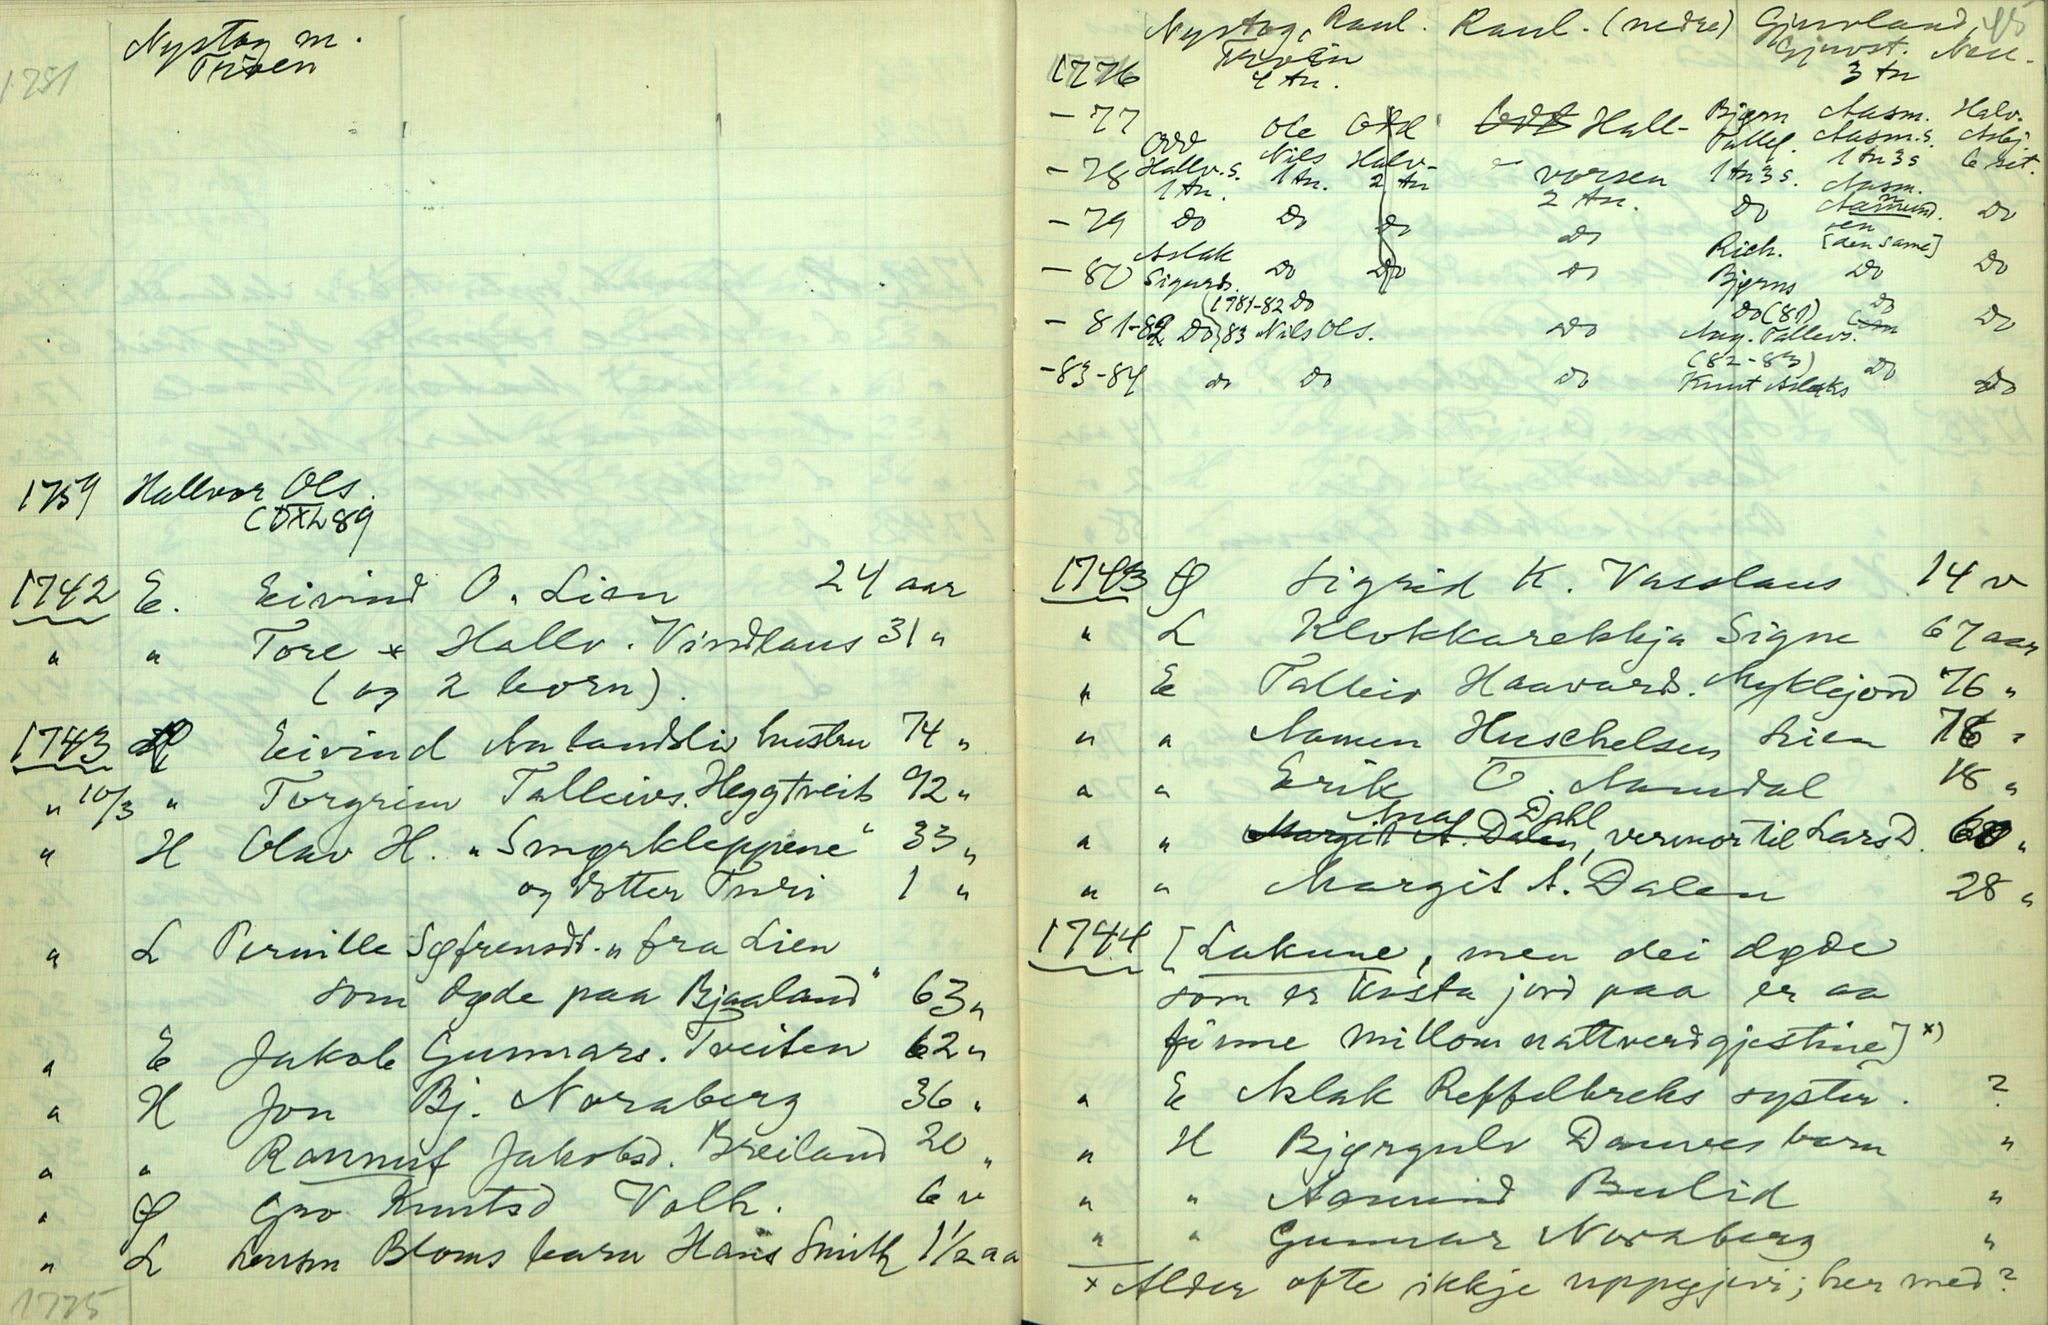 Nystog m.
Trovin
1751
1759 Hallvor Ols.
1742 E. Eivind O. Lien 24 aar
" " Tore x Hallv. Vindlaus 31 "
(og 2 born).
1743 Ø Eivind Aalandsli hustru 74 "
" 10/3 " Torgrim Talleivs. Heggtveit 92 "
" H Olav H. "Smørkleppene" 33 "
og dotter Turi 1 "
" L Pernille Søfrensdt. " fra Lien
som døde paa Bjaaland" 63 "
" E Jakob Gunnars. Tveiten 62 "
" H Jon Bj. Noraberg 36 "
" " Rannuf Jakobsd. Breiland 20 "
" Ø Gro Knutsd Valk. 6 v
" L Lensm Bloms barn Hans Smith 1 1/2 aa
1775
Nystog, Raul. Raul. (nedre) Gjuvland 45
Trovin Gjuvst. Ned.
1776 4 tn. 3 tn
-77 Odd Ole Odd Odd Hall- Bjørn Aasm. Halv.
Tallef. Aasm.s. Asbj.
-78 Hallv.s. Nils Halv- vorsen 1 tn 3 s. 1 tn 3 s 6 set.
1 tn. 1 tn. 2 tn 2 tn. Aasm.
-79 Do Do Do Do Do Aamund. Do
sen
Aslak Rich. [den same]
-80 Sigurds. Do Do Do Bjørns Do Do
(1781-82 Do Do (81) Do
-81-82 Do 83 Nils Ols. Do Aag. Tallevs. Do
(82-83)
-83-84 Do Do Do Knut Aslaks Do Do
1743 Ø Sigrid K. Vasslaus 14 v
" L Klokkarekkja Signe 67 aar
" E Talleiv Haavards. Myklejord 76 "
" " Aamun Huschelsen Lien 76 "
" " Erik O. Aamdal 18 "
Anne Dahl
" " Margit A. Dalen, vermor til Lars D. 60 "
" " Margit A. Dalen 28 "
1744 [Lakune, men dei døde
som er kasta jord paa er aa
finne millom nattverdgjestine] x)
" E Aslak Reffelbreks syster. ?
" H Bjørgulv Daurves barn "
" " Aamund Bulid "
" " Gunnar Noraberg "
x Alder ofte ikkje uppgjevi; her med ?